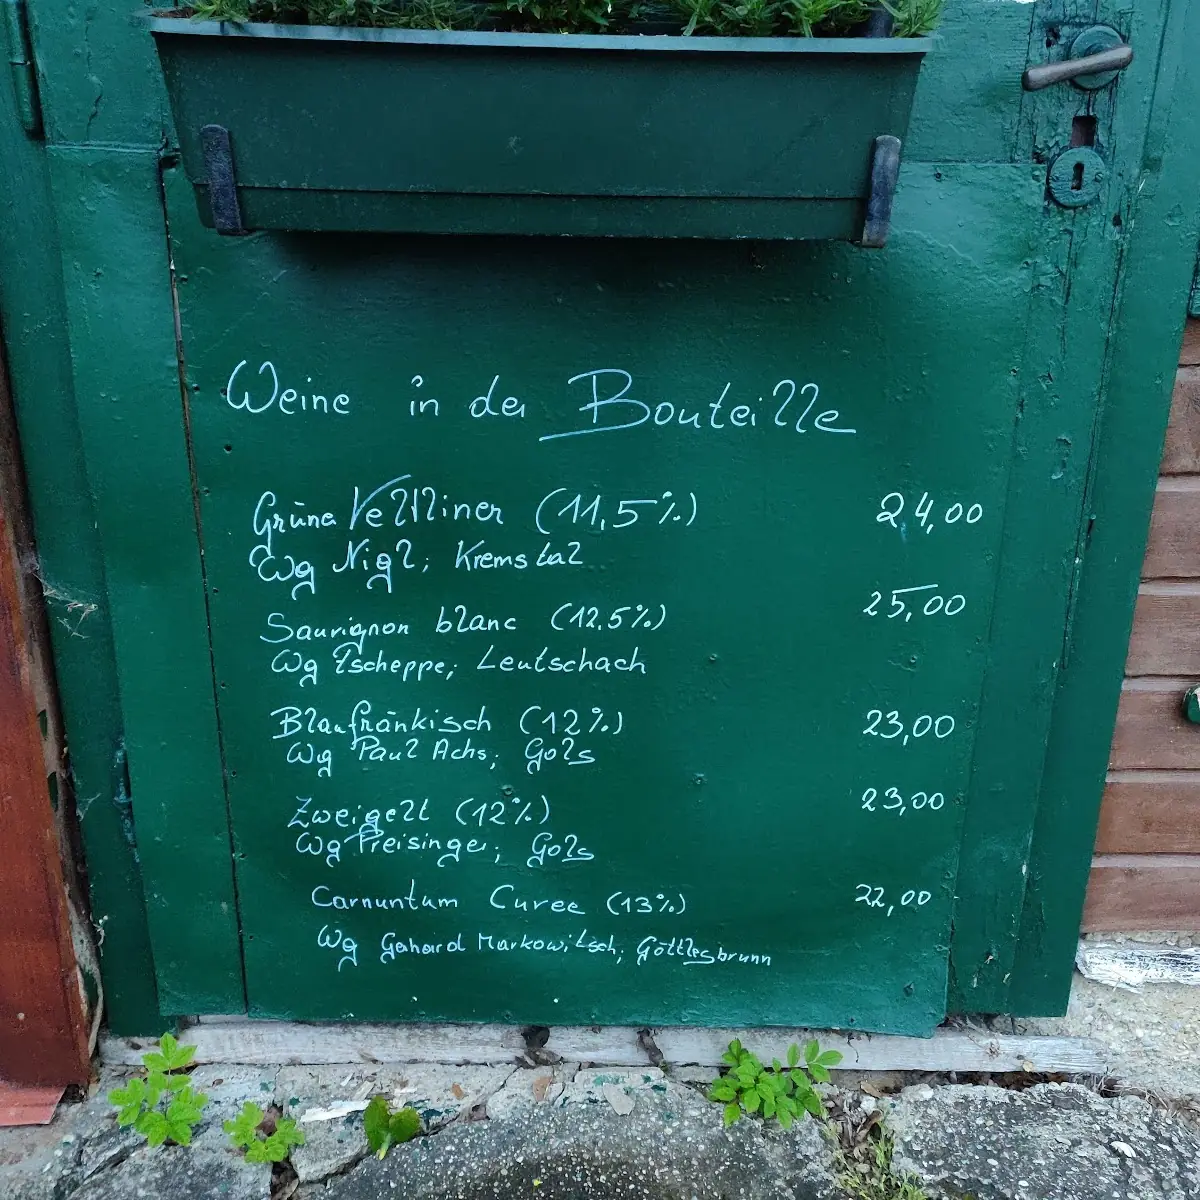 Weine in der Bouteille
Grüner Veltliner (11,5%) 24,00
Wg Nigl; Kremstal
Sauvignon blanc (12,5%) 25,00
Wg Tscheppe; Leutschach
Blaufränkisch (12%) 23,00
Wg Paul Achs; Gols
Zweigelt (12%) 23,00
Wg Preisinger; Gols
Carnuntum Cuvee (13%) 22,00
Wg Gerhard Markowitsch; Göttlesbrunn